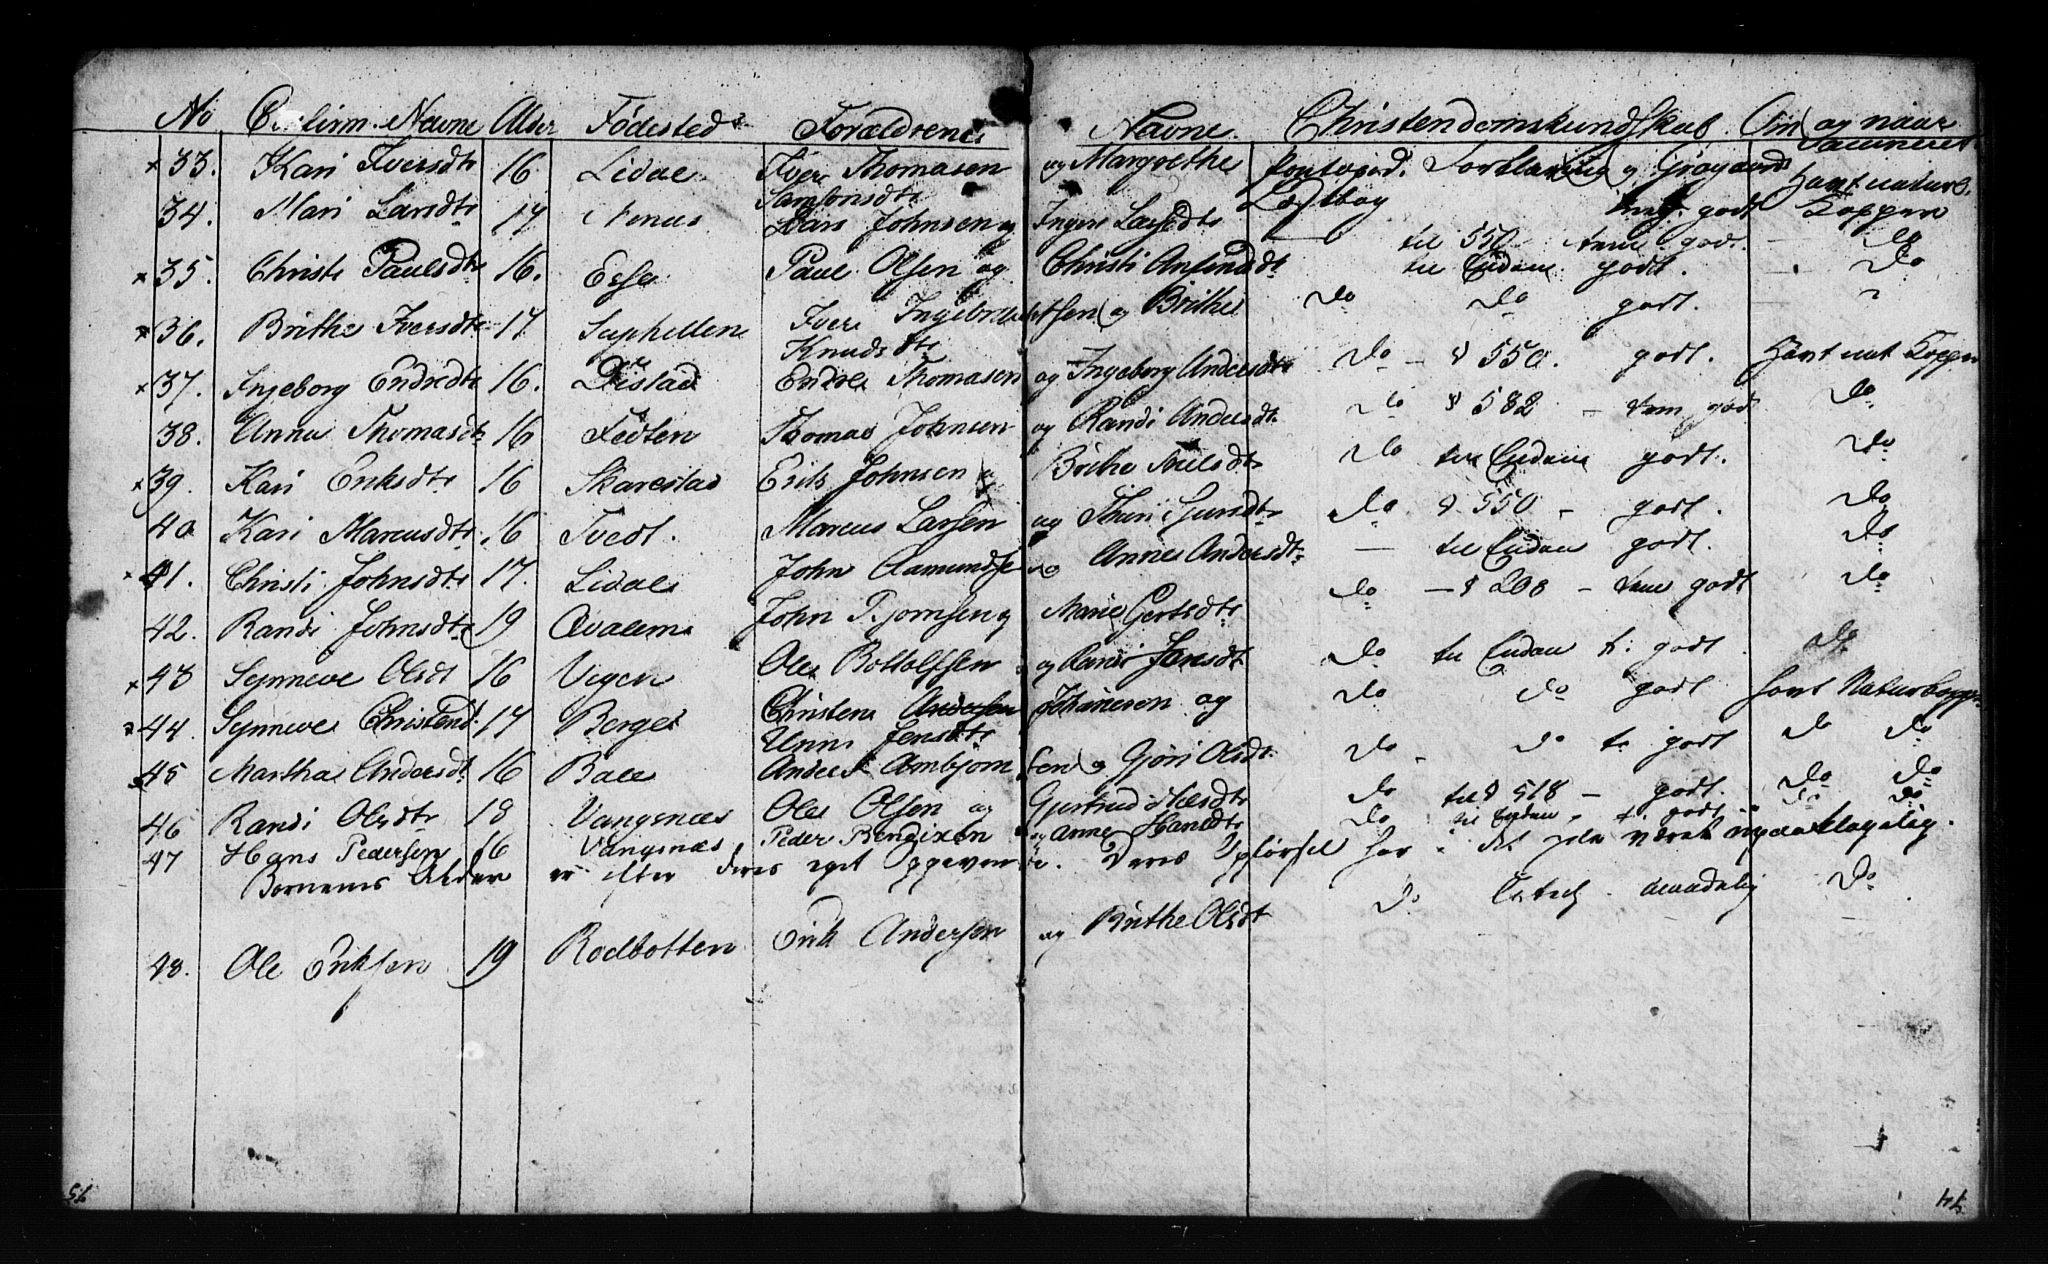 No Confirm. Navne Alder Fødested Forældrenes Navne Christendomskundskab Om og naar Vaccineret
33. Kari Iversdtr 16 Lidal Iver Thomasen Samsonsdtr og Margrethe Pontopid. Forklaring og Lærebog godt Havt naturl. Kopper
34. Mari Larsdtr 17 Nenæs Lars Johnsen og Ingeri Larsdtr til 550 godt. Do
35. Christi Paulsdtr 16. Essø Paul Olsen og Christi Ansensdtr til Enden godt. Do
36. Brithe Iversdtr 17 Suphellen Iver Ingebretsen og Brithe Knudsdtr Do Do godt.
37. Ingeborg Endredtr 16. Distad Endre Thomasen og Ingeborg Andersdtr Do - § 550. godt. Havt nat Kopper
38. Anna Thomasdtr 16 Tedten Thomas Johnsen og Randi Andersdtr Do § 582 - godt Do
39. Kari Eriksdtr 16 Skarestad Erik Johnsen og Brithe Nielsdtr Do til Enden godt. Do
40 Kari Marcusdtr 16 Tvedt. Marcus Larsen og Thuri Do § 550 - godt. Do
41. Christi Johnsdtr 17. Lidal John Aamundse og Anne Andersdtr - til Enden godt. Do
42. Randi Johnsdtr 19 Qvalem John Bjørnsen og Marie Gertsdtr Do - § 208 - godt Do
43 Synneve Olsdt 16 Vigen Ole Bottolfsen og Randi Jensdt Do til Enden t. godt Do
44. Synneve Christensd. 17 Berge Christen Andersen Johannesen og Unni Jensdtr Do Do godt havt Naturkopp.
45 Martha Andersdt. 16 Bale Anders Arnbjørnsen og Gjøri Olsdt. Do Do t. godt Do Do
46 Randi Olsdtr 18 Vangsnæs Ole Olsen og Gjertrud Nilsdtr Do til § 518 - godt. Do Do
47 Hans Pedersen 16 Vangsnæs Peder Bendixen og Anne Hansdtr Do til Enden t. godt Do Do
Børnenes Alder er efter deres eget Opgivende. Deres Opførsel har i det hele været upaaklagelig.
48. Ole Eriksen 19 Rodbotten Erik Andersen og Brithe Olsdt Do maadelig Do